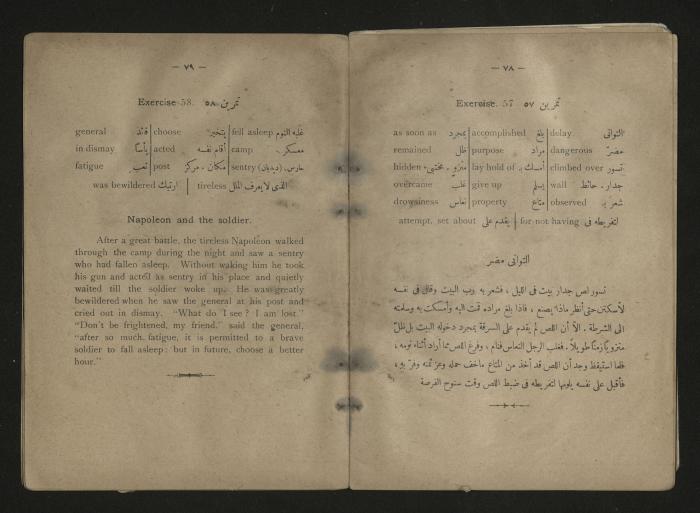 — ٧٨ —
Exercise. 57 تمرين ٥٧
as soon as بمجرد accomplished بلغ delay التوانى
remained ظل purpose مراد dangerous مضرّ
hidden منزوٍ ، مختبىء lay hold of أمسك بـ climbed over تسور
overcame غلب give up يسلم wall جدار . حائط
drowsiness نعاس property متاع observed شعر بـ
attempt, set about يقدم على for not having لتفريطه فى
التوانى مضر
تسور لص جدار بيت فى الليل ، فشعر به رب البيت وقال فى نفسه
لأسكتن حتى أنظر ماذا يصنع ، فاذا بلغ مراده قمت اليه وأمسكت به وسلمته
الى الشرطة . الاّ أن اللص لم يقدم على السرقة بمجرد دخوله البيت بل ظلّ
منزوياً زمناً طويلاً . فغلب الرجل النعاس فنام ، وفرغ اللص مما أراد أثناء نومه ،
فلما استيقظ وجد أن اللص قد أخذ من المتاع ماخف حمله وعز ثمنه وفرّ به ،
فأقبل على نفسه يلومها لتفريطه فى ضبط اللص وقت سنوح الفرصة
— ٧٩ —
Exercise 58. تمرين ٥٨
general قائد choose يتخير fell asleep غلبه النوم
in dismay يأسًا acted أقام نفسه camp معسكر
fatigue تعب post مكان . مركز sentry حارس . (ديدبان)
was bewildered ارتبك tireless الذى لا يعرف الملل
Napoleon and the soldier.
After a great battle, the tireless Napoleon walked
through the camp during the night and saw a sentry
who had fallen asleep. Without waking him he took
his gun and acted as sentry in his place and quietly
waited till the soldier woke up. He was greatly
bewildered when he saw the general at his post and
cried out in dismay. "What do I see? I am lost."
"Don't be frightened, my friend." said the general,
"after so much fatigue, it is permitted to a brave
soldier to fall asleep: but in future, choose a better
hour."